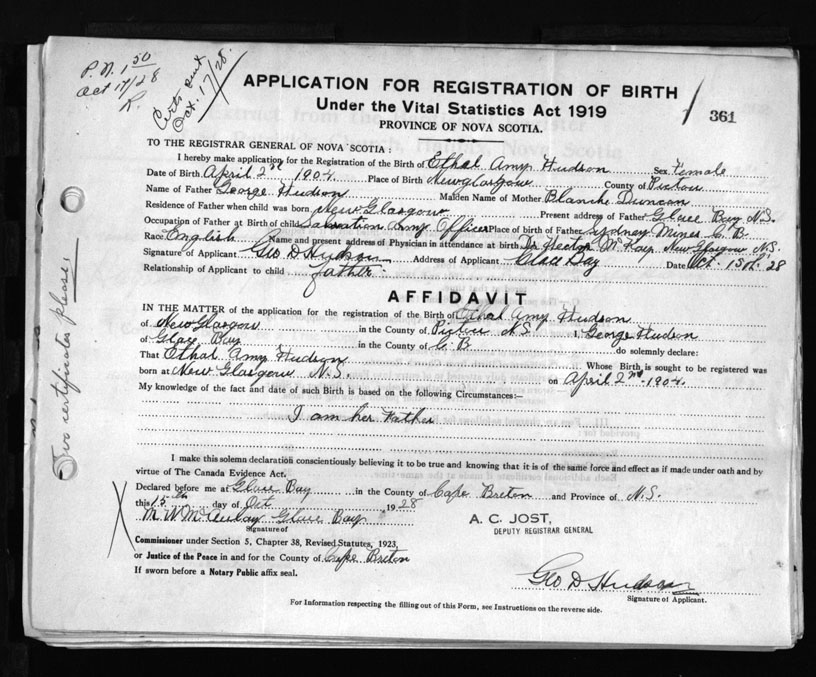 P.N. 1 50
Oct 17/28
R.
Certs sent
Oct. 17/28.
APPLICATION FOR REGISTRATION OF BIRTH
Under the Vital Statistics Act 1919
PROVINCE OF NOVA SCOTIA.
361
TO THE REGISTRAR GENERAL OF NOVA SCOTIA:
I hereby make application for the Registration of the Birth of Ethal Amy Hudson Sex Female
Date of Birth April 2nd 1904 Place of Birth New Glasgow County of Pictou
Name of Father George Hudson Maiden Name of Mother Blanche Duncan
Residence of Father when child was born New Glasgow Present address of Father Glace Bay N.S.
Occupation of Father at Birth of child Salvation Army Officer Place of birth of Father Sydney Mines C.B.
Race English Name and present address of Physician in attendance at birth Dr. Hector McKay New Glasgow N.S.
Signature of Applicant Geo D Hudson Address of Applicant Glace Bay Date Oct. 15th '28
Relationship of Applicant to child father
AFFIDAVIT
IN THE MATTER of the application for the registration of the Birth of Ethal Amy Hudson
of New Glasgow in the County of Pictou N.S. I, George Hudson
of Glace Bay in the County of C.B do solemnly declare:
That Ethal Amy Hudson Whose Birth is sought to be registered was
born at New Glasgow N.S. on April 2nd 1904.
My knowledge of the fact and date of such Birth is based on the following Circumstances:—
I am her Father
I make this solemn declaration conscientiously believing it to be true and knowing that it is of the same force and effect as if made under oath and by
virtue of The Canada Evidence Act.
Declared before me at Glace Bay in the County of Cape Breton and Province of N.S.
this 15th day of Oct 1928
M. W. McAulay Glace Bay
Signature of
A. C. JOST,
DEPUTY REGISTRAR GENERAL
Commissioner under Section 5, Chapter 38, Revised Statutes, 1923,
or Justice of the Peace in and for the County of Cape Breton
If sworn before a Notary Public affix seal.
Geo D Hudson
Signature of Applicant.
For Information respecting the filling out of this Form, see Instructions on the reverse side.
Two certificates please.